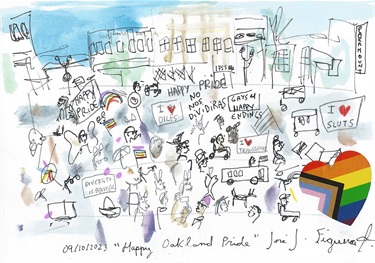 HAPPY PRIDE
NO
NOS
DIVIDIRÁS
HAPPY
PRIDE
GAYS 4
HAPPY
ENDINGS
I ❤
DILFS
I ❤
SLUTS
I ❤
DIVERSITY
IS
09/10/2023 "Happy Oakland Pride" José J. Figueroa